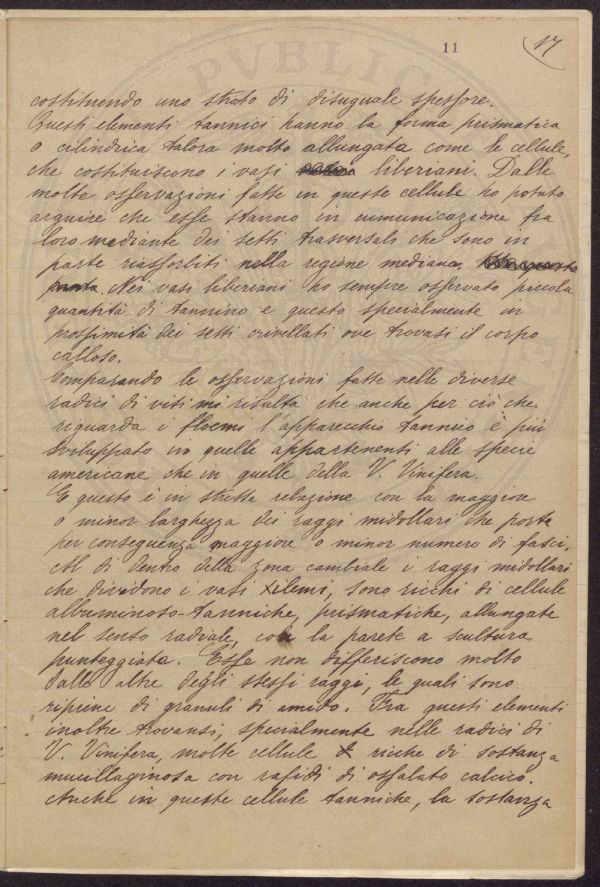 11
17
costituendo uno strato di disuguale spessore.
Questi elementi tannici hanno la forma prismatica
o cilindrica talora molto allungata come le cellule,
che costituiscono i vasi liberiani. Dalle
molte osservazioni fatte in queste cellule ho potuto
arguire che esse stanno in cumunicazione fra
loro mediante dei setti trasversali che sono in
parte riassorbiti nella regione mediana.
Nei vasi liberiani ho sempre osservato piccola
quantità di tannino e questo specialmente in
prossimità dei setti crivellati ove trovasi il corpo
calloso.
Comparando le osservazioni fatte nelle diverse
radici di viti mi risulta che anche per ciò che
riguarda i floemi l'apparecchio tannico è più
sviluppato in quelle appartenenti alle specie
americane che in quelle della V. Vinifera.
E questo è in stretta relazione con la maggiore
o minor larghezza dei raggi midollari che porta
per conseguenza maggiore o minor numero di fasci.
Al di dentro della zona cambiale i raggi midollari
che dividono i vasi xilemi, sono ricchi di cellule
albuminoso-tanniche, prismatiche, allungate
nel senso radiale, con la parete a scultura
punteggiata. Esse non differiscono molto
dalle altre degli stessi raggi, le quali sono
ripiene di granuli di amido. Fra questi elementi
inoltre trovansi, specialmente nelle radici di
V. Vinifera, molte cellule ricche di sostanza
mucillaginosa con rafidi di ossalato calcico.
Anche in queste cellule tanniche, la sostanza
PVBLIC